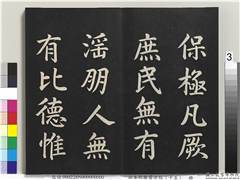 保極凡厥
庶民無有
淫朋人無
有比德惟
3